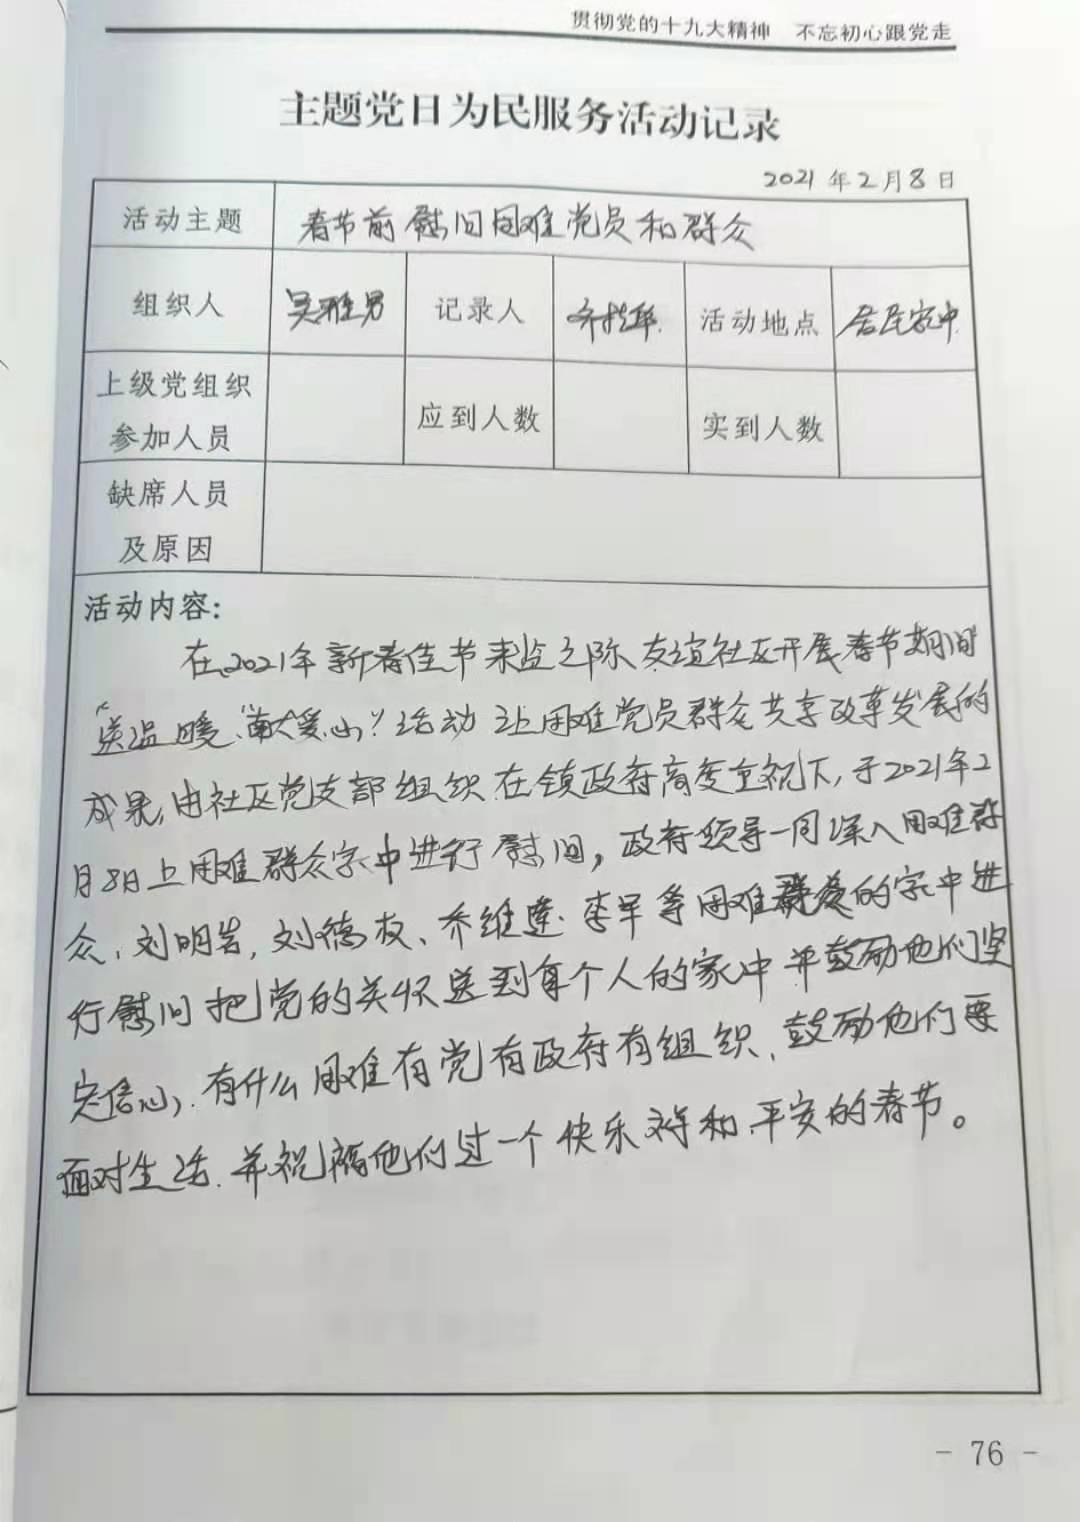 贯彻党的十九大精神 不忘初心跟党走
主题党日为民服务活动记录
2021年2月8日
活动主题 春节前慰问困难党员和群众
组织人 吴雅男 记录人 活动地点 居民家中
上级党组织
参加人员 应到人数 实到人数
缺席人员
及原因
活动内容:
在2021年新春佳节来临之际,友谊社区开展春节期间
“送温暖、“献爱心”活动 让困难党员群众共享改革发展的
成果,由社区党支部组织.在镇政府高度重视下,于2021年2
月8日上困难群众家中进行慰问,政府领导一同深入困难群
众、刘明岩,刘德权、乔维莲.李军等困难群众的家中进
行慰问 把党的关怀送到每个人的家中 并鼓励他们坚
定信心,.有什么困难有党有政府有组织、鼓励他们要
面对生活.并祝福他们过一个快乐祥和.平安的春节。
- 76 -